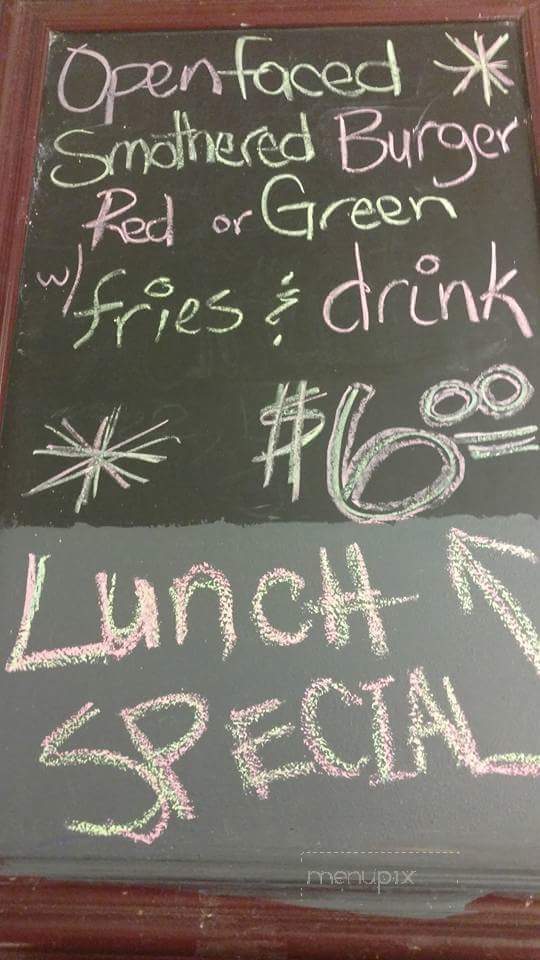 Openfaced
Smothered Burger
Red or Green
w/ fries & drink
$6.00
Lunch
SPECIAL
menupix